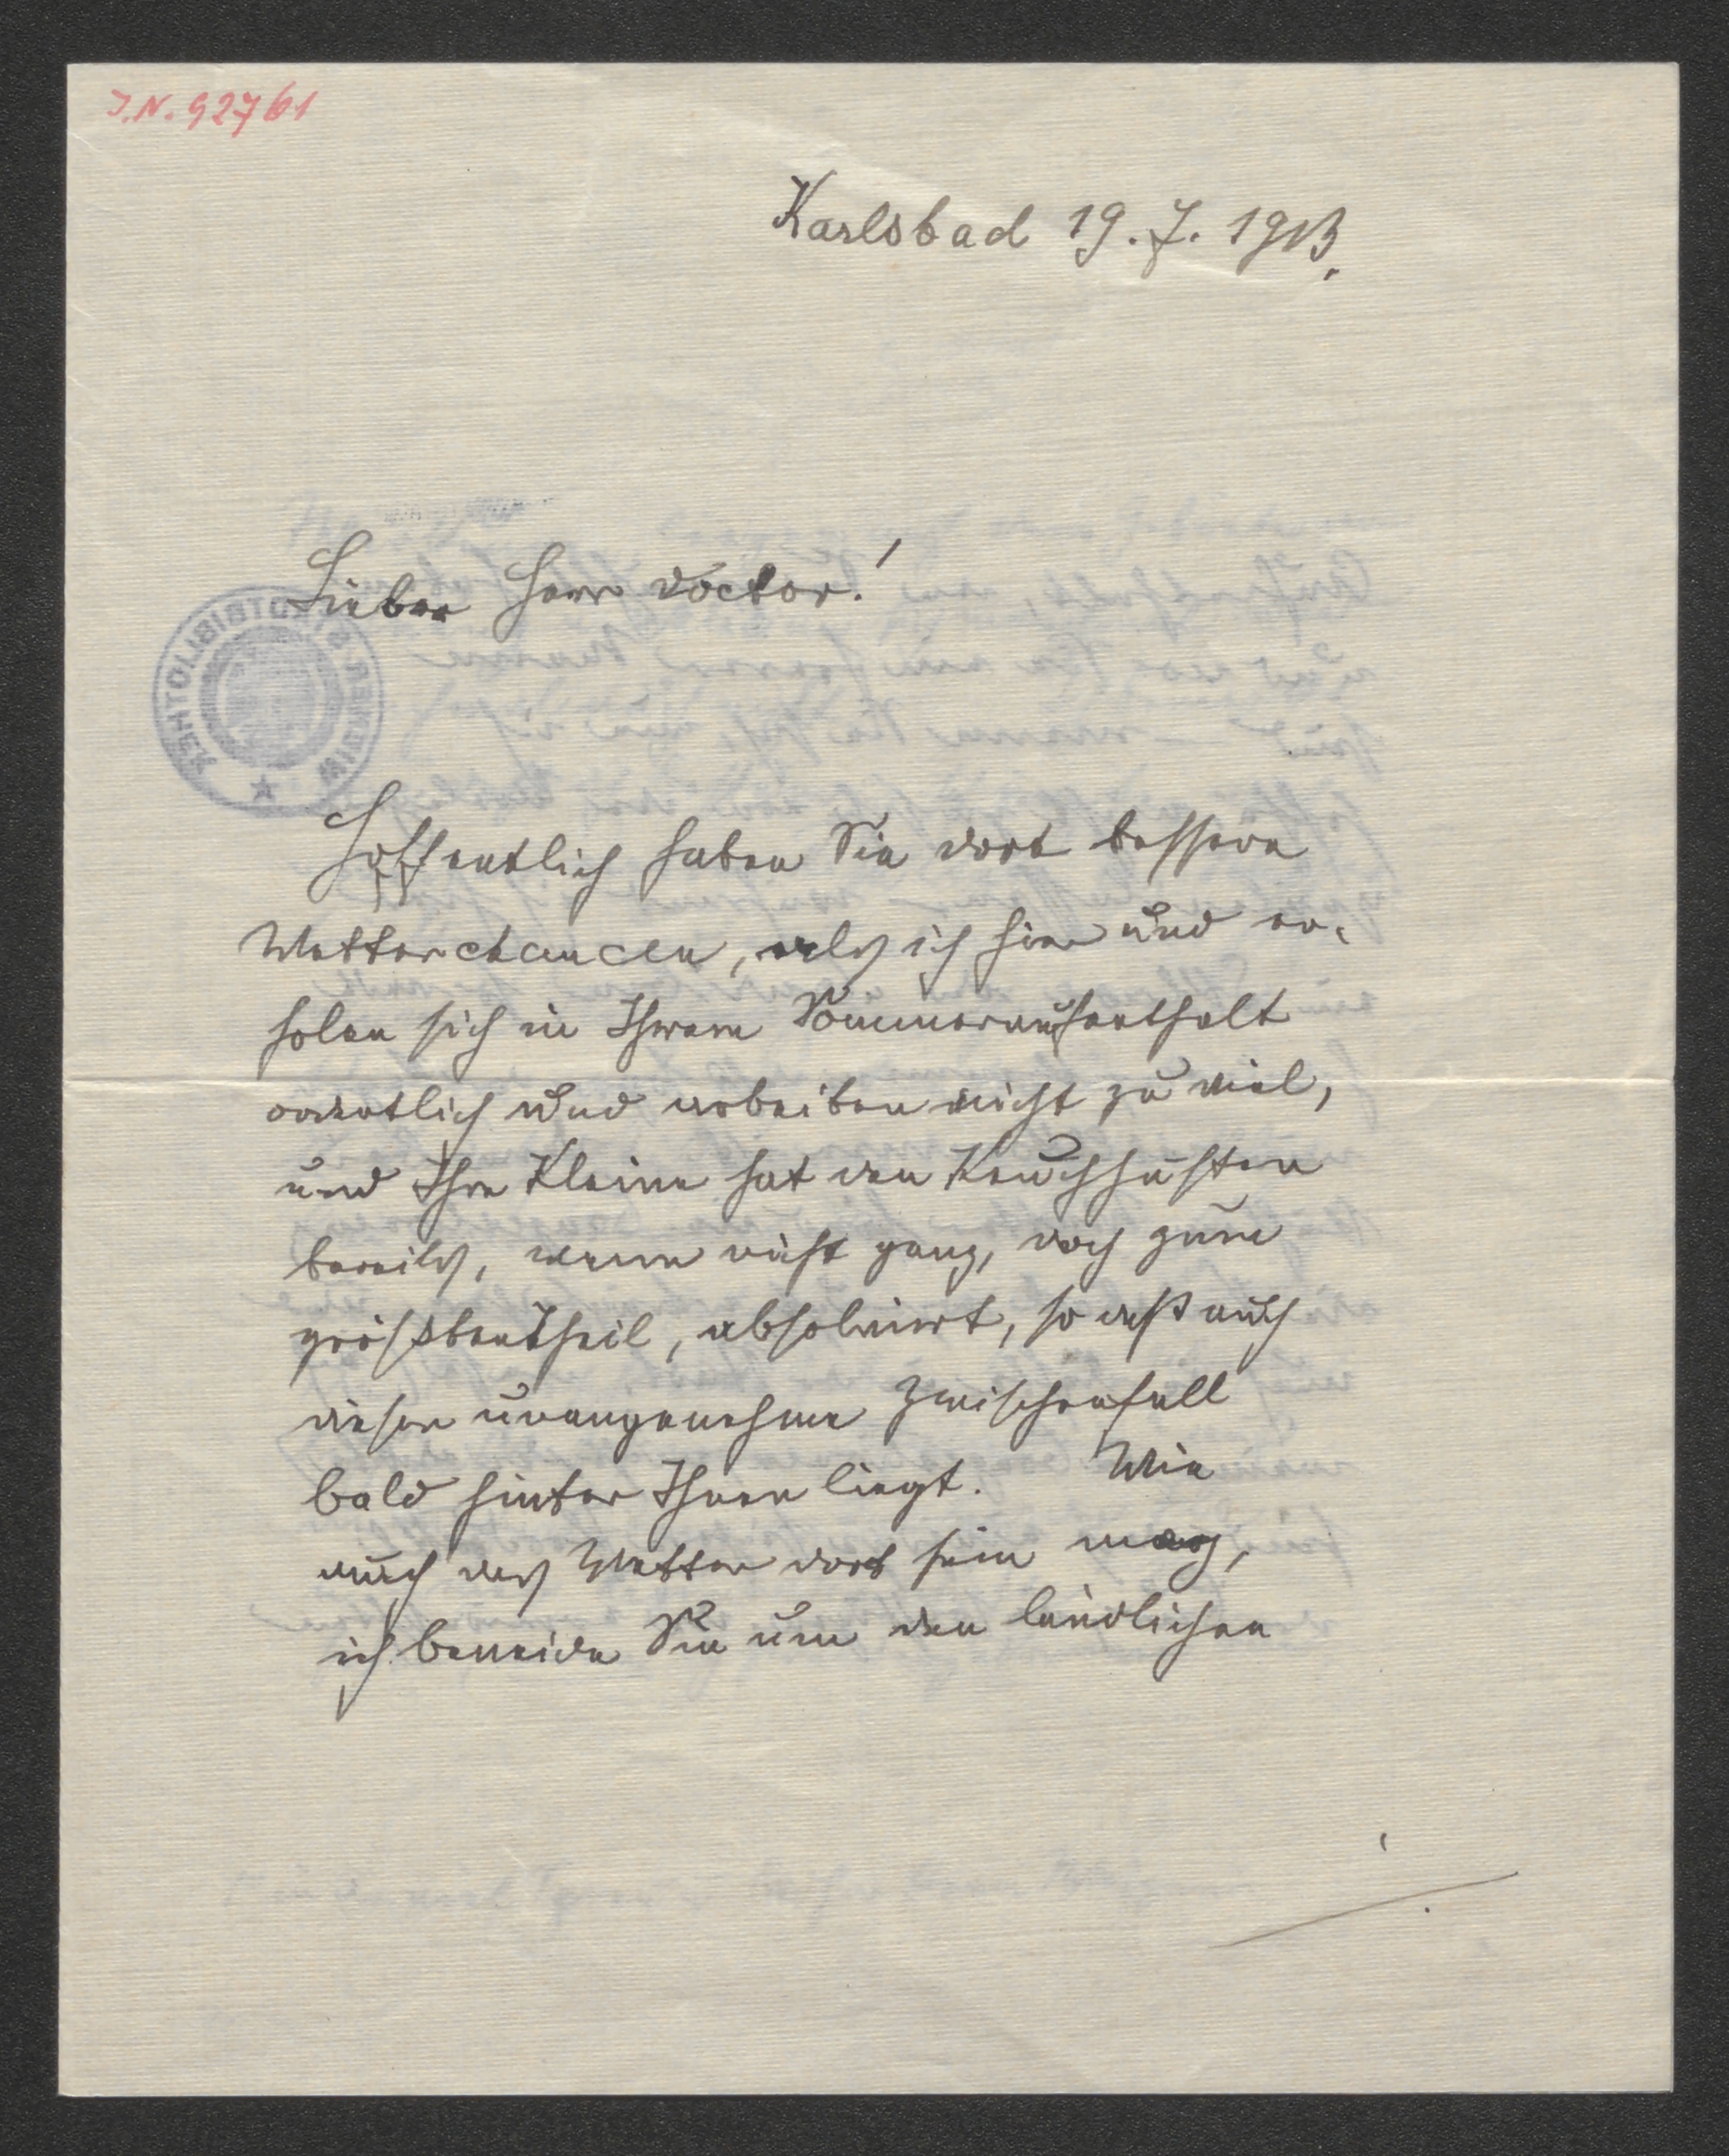 J.N. 92761
Karlsbad 19. 7. 1913.
Lieber Herr Doctor!
Hoffentlich haben Sie dort bessere
Wetterchancen, als ich hier und er-
holen sich in Ihrem Sommeraufenthalt
ordentlich und arbeiten nicht zu viel,
und Ihre Kleine hat den Keuchhusten
bereits, wenn nicht ganz, doch zum
größten Theil, absolvirt, so daß auch
dieser unangenehme Zwischenfall
bald hinter Ihnen liegt. Wie
auch das Wetter dort sein mag,
ich beneide Sie um den ländlichen